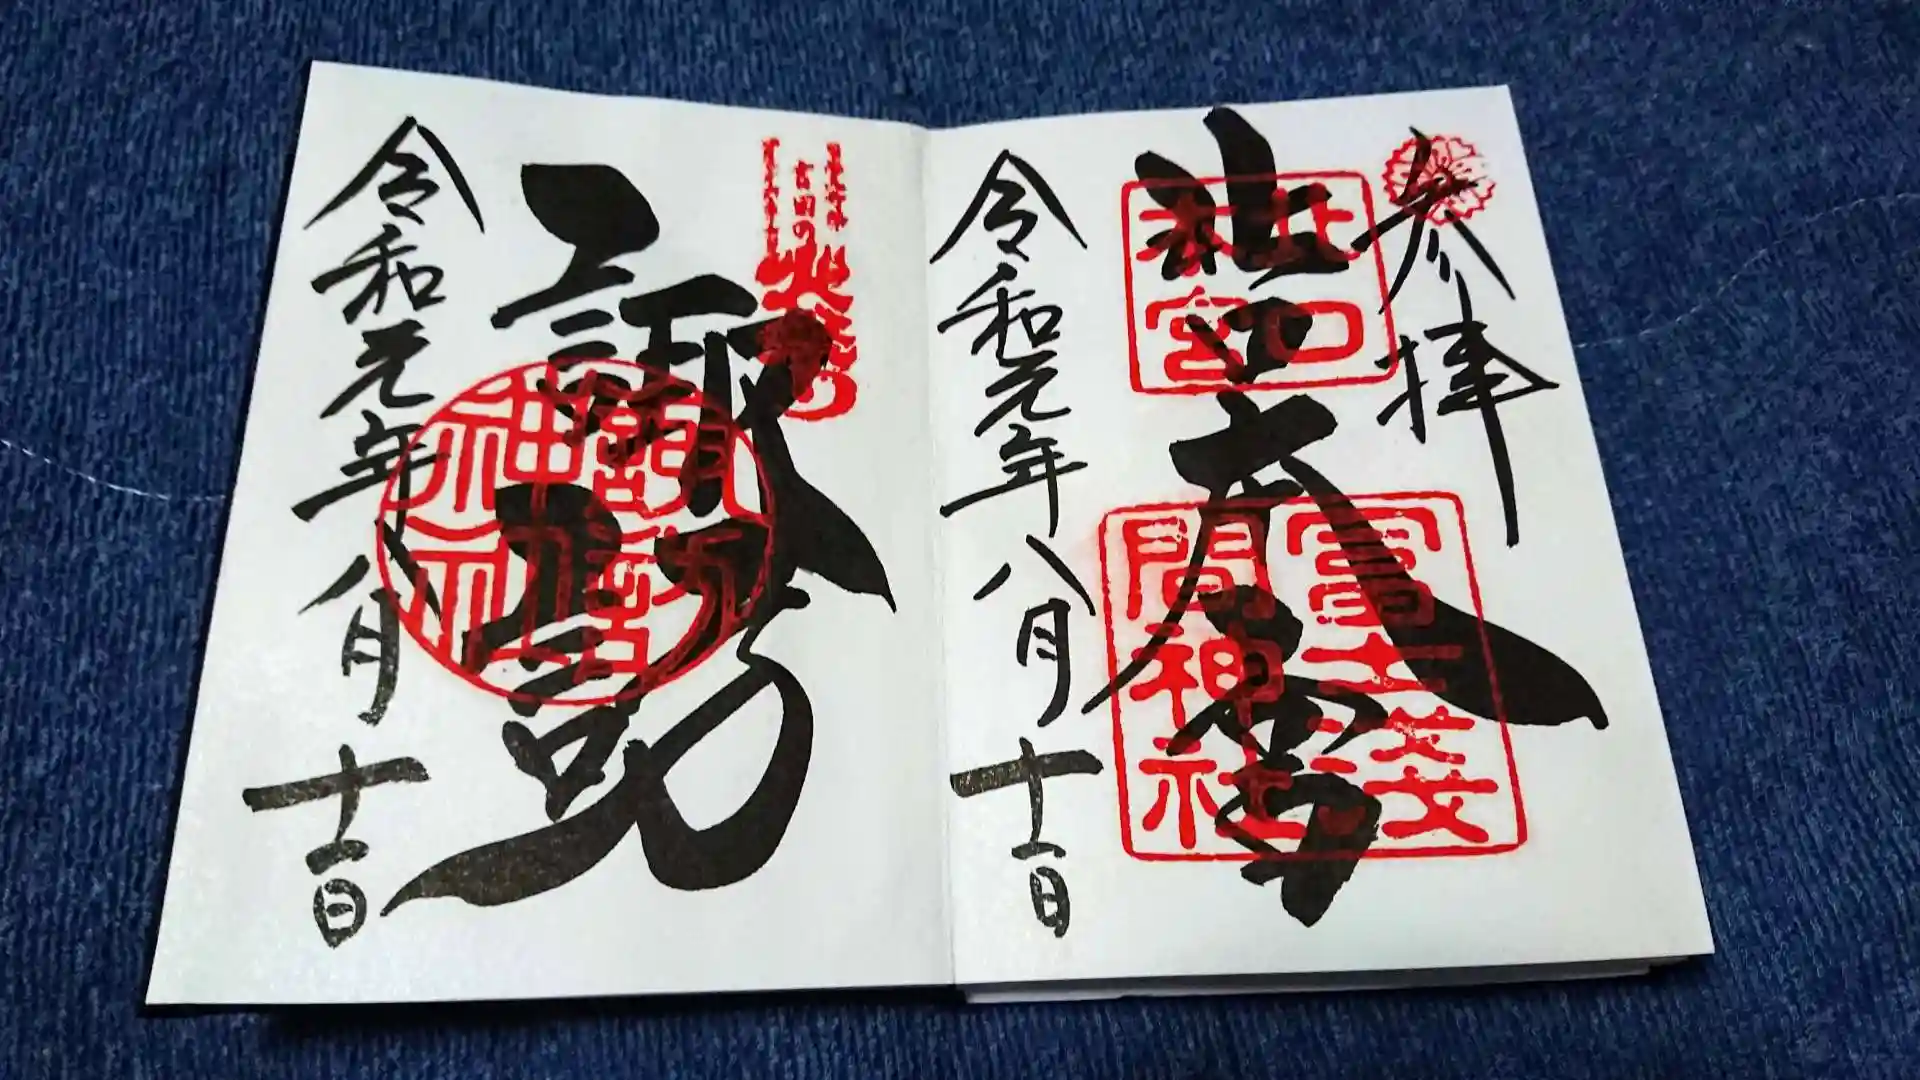 参拝
北口本宮
北口
本宮
冨士浅
間神社
令和元年八月十一日
吉田の火祭り
諏訪
諏訪
神社
令和元年八月十一日